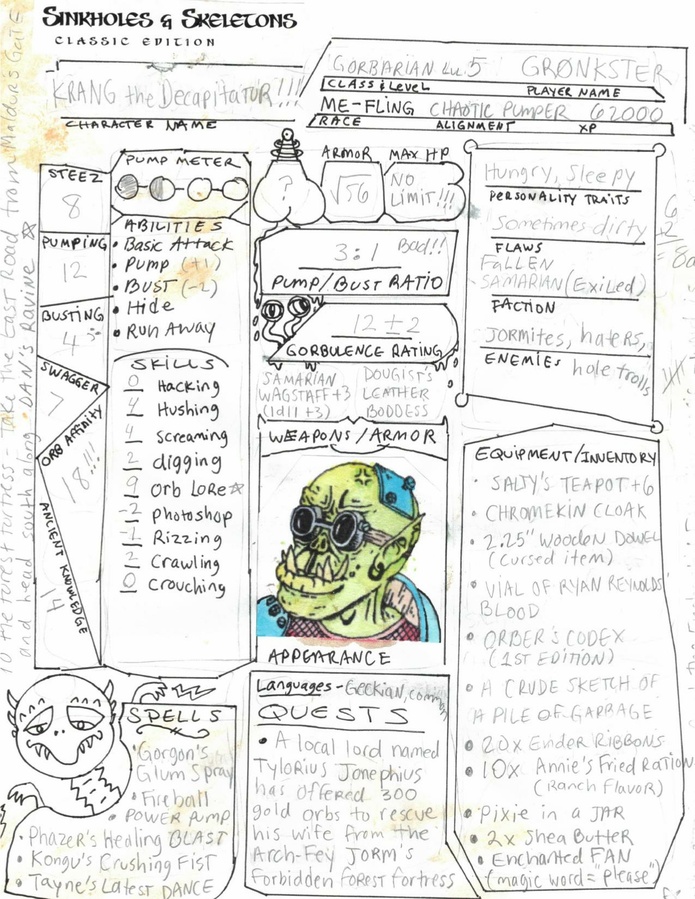 SINKHOLES & SKELETONS
CLASSIC EDITION
KRANG the DecapitatOR!!!
CHARACTER NAME
GORBARIAN Lv. 5 GRØNKSTER
CLASS & LEVEL PLAYER NAME
ME-FLING CHAOTIC PUMPER 62000
RACE ALIGNMENT XP
STEEZ
8
PUMPING
12
BUSTING
4
SWAGGER
7
ORB AFFINITY
18!!!
ANCIENT KNOWLEDGE
PUMP METER
ABILITIES
• Basic Attack
• Pump (+1)
• BUST (-2)
• Hide
• Run Away
SKILLS
0 Hacking
4 Hushing
4 Screaming
2 digging
9 Orb LoRe
-2 Photoshop
-1 Rizzing
2 Crawling
0 Crouching
?
ARMOR
√56
MAX HP
NO
LIMIT!!!
3:1 Bad!!
PUMP/BUST RATIO
12 ± 2
GORBULENCE RATING
SAMARIAN
WAGSTAFF +3
(1d11 +3)
DOUGIST'S
LEATHER
BODDESS
WEAPONS/ARMOR
APPEARANCE
Hungry, Sleepy
PERSONALITY TRAITS
Sometimes dirty
FLAWS
FALLEN
SAMARIAN (Exiled)
FACTION
JORMITES, haters,
ENEMIES hole trolls
EQUIPMENT/INVENTORY
• SALTY'S TEAPOT +6
• CHROMEKIN CLOAK
• 2.25" Wooden Dowel
(cursed item)
• VIAL OF RYAN REYNOLDS
BLOOD
• ORBER'S CODEX
(1ST EDITION)
• A CRUDE SKETCH OF
A PILE OF GARBAGE
• 20x Ender Ribbons
• 10x Annie's Fried Ration
(Ranch Flavor)
• Pixie in a JAR
• 2x Shea Butter
• Enchanted FAN
(magic word = please)
SPELLS
• Gorgon's
Glum Spray
• Fireball
• POWER PUMP
• Phazer's Healing BLAST
• Kongu's Crushing FIST
• Tayne's Latest DANCE
Languages - Geekian, common
QUESTS
• A local lord named
Tylorius Jonephius
has offered 300
gold orbs to rescue
his wife from the
Arch-Fey JORM'S
Forbidden FOREST fortress
To the forest fortress - Take the East Road from Maldur's Gate
and head south along DAN'S RAVINE